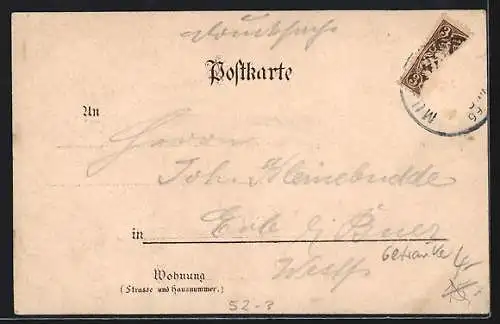 Drucksache
Postkarte
3
3
An
Herrn
Joh. Kleinebudde
in Erle b/ Buer
Westf
Getränke
Wohnung
(Strasse und Hausnummer.)
52-3